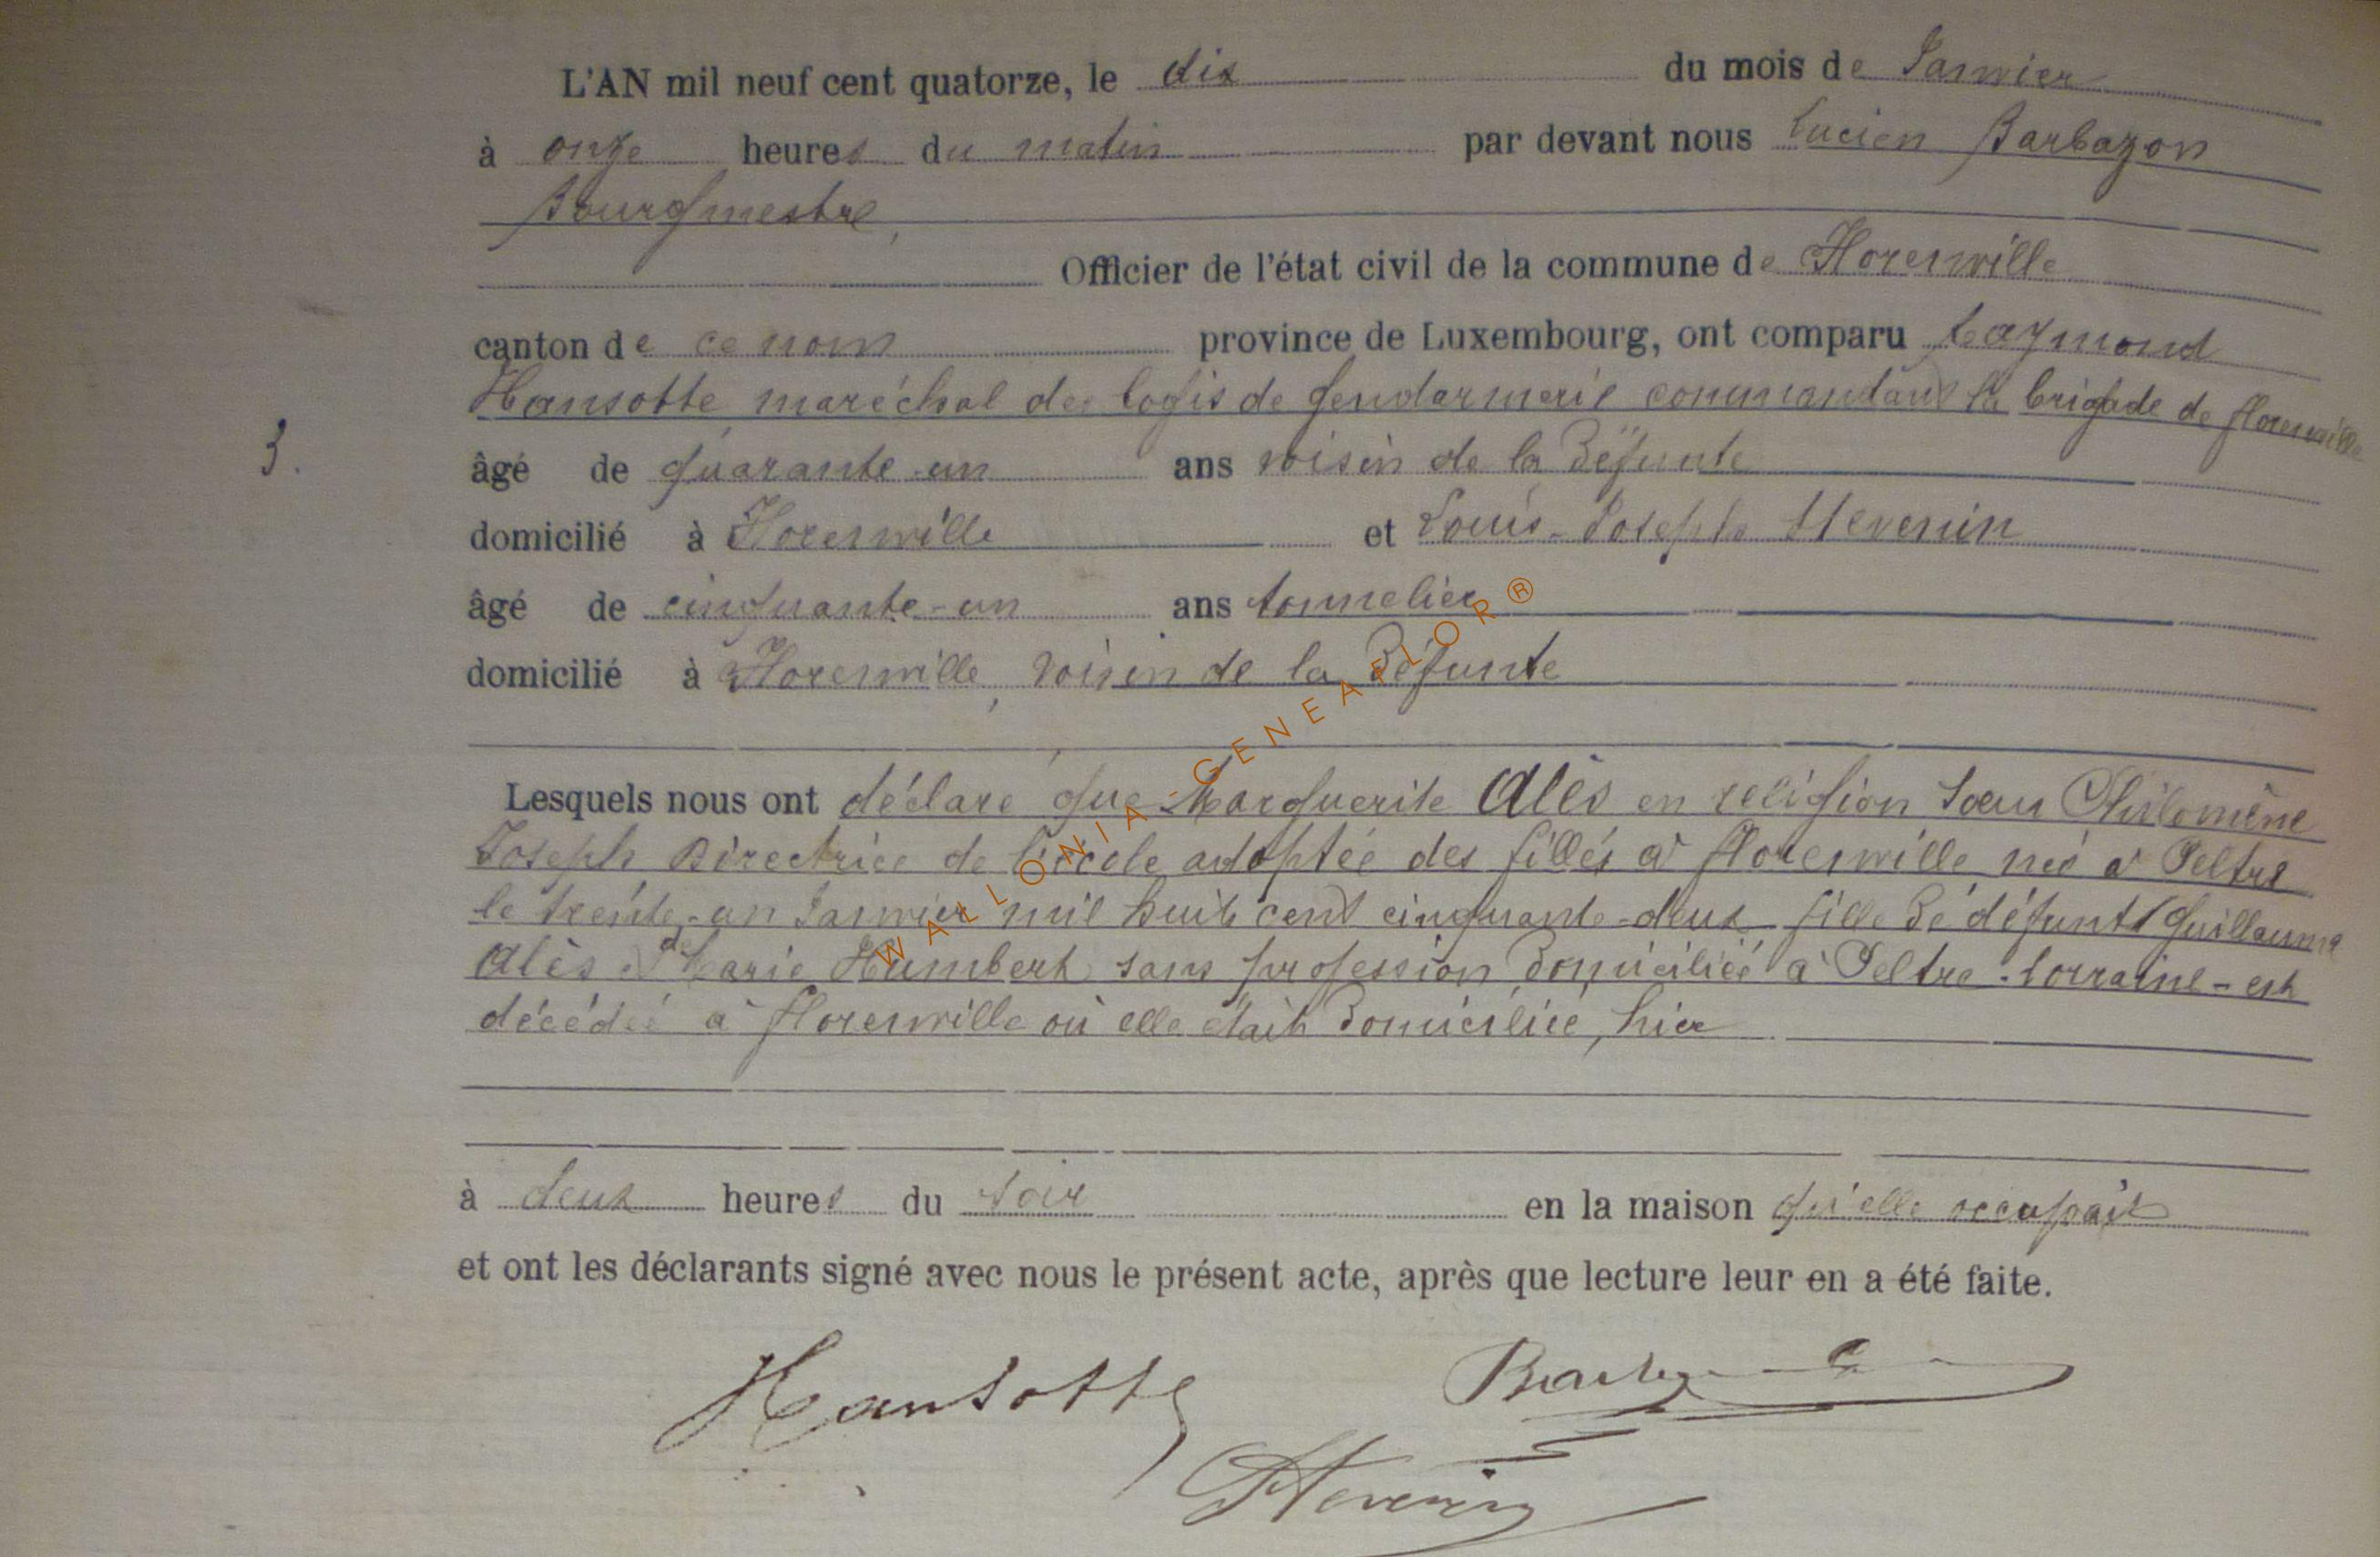 L'AN mil neuf cent quatorze, le dix du mois de Janvier
à onze heures du matin par devant nous Lucien Barbazon
Bourgmestre,
Officier de l'état civil de la commune de Florenville
canton de ce nom province de Luxembourg, ont comparu
Hansotte maréchal des logis de gendarmerie commandant la brigade de florenville
3.
âgé de quarante-un ans voisin de la Défunte
domicilié à Florenville et Louis-Joseph Hevenin
âgé de cinquante-un ans tonnelier
domicilié à Florenville, voisin de la Défunte
Lesquels nous ont déclaré que Marguerite Alès en religion Sœur Philomène
Joseph Directrice de l'école adoptée des filles à florenville née à Peltre
le trente-un Janvier mil huit cent cinquante-deux fille de défunt Guillaume
Alès et de Marie Humbert sans profession domiciliée à Peltre-Lorraine-est
décédée à florenville où elle était domiciliée, hier
à deux heures du soir en la maison qu'elle occupait
et ont les déclarants signé avec nous le présent acte, après que lecture leur en a été faite.
Hansotte
Hevenin
WALLONIA-GENEAFLOR®